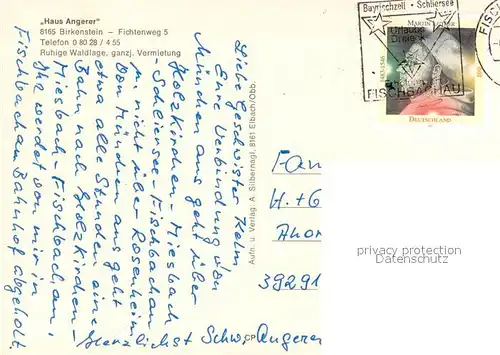 „Haus Angerer"
8165 Birkenstein – Fichtenweg 5
Telefon 0 80 28 / 4 55
Ruhige Waldlage, ganzj. Vermietung
Liebe Geschwister Holm
Eine Verbindung von
München aus geht über
Holzkirchen – Miesbach
– Schliersee – Fischbachau
nicht über Rosenheim
Von München aus geht
etwa alle Stunden eine
Bahn nach Holzkirchen –
Miesbach – Fischbachau.
Ihr werdet von mir in
Fischbachau Bahnhof abgeholt.
Herzlichst Schw. Angerer
Aufn. u. Verlag: A. Silbernagl, 8161 Elbach/Obb.
CP
Bayrischzell · Schliersee
Urlaubs
Dreieck
FISCHBACHAU
MARTIN LUTHER
1483-1546
DEUTSCHLAND
FISC
Fam
H. + G
Ahor
39291
privacy protection
www.ansichtskartenversand.com